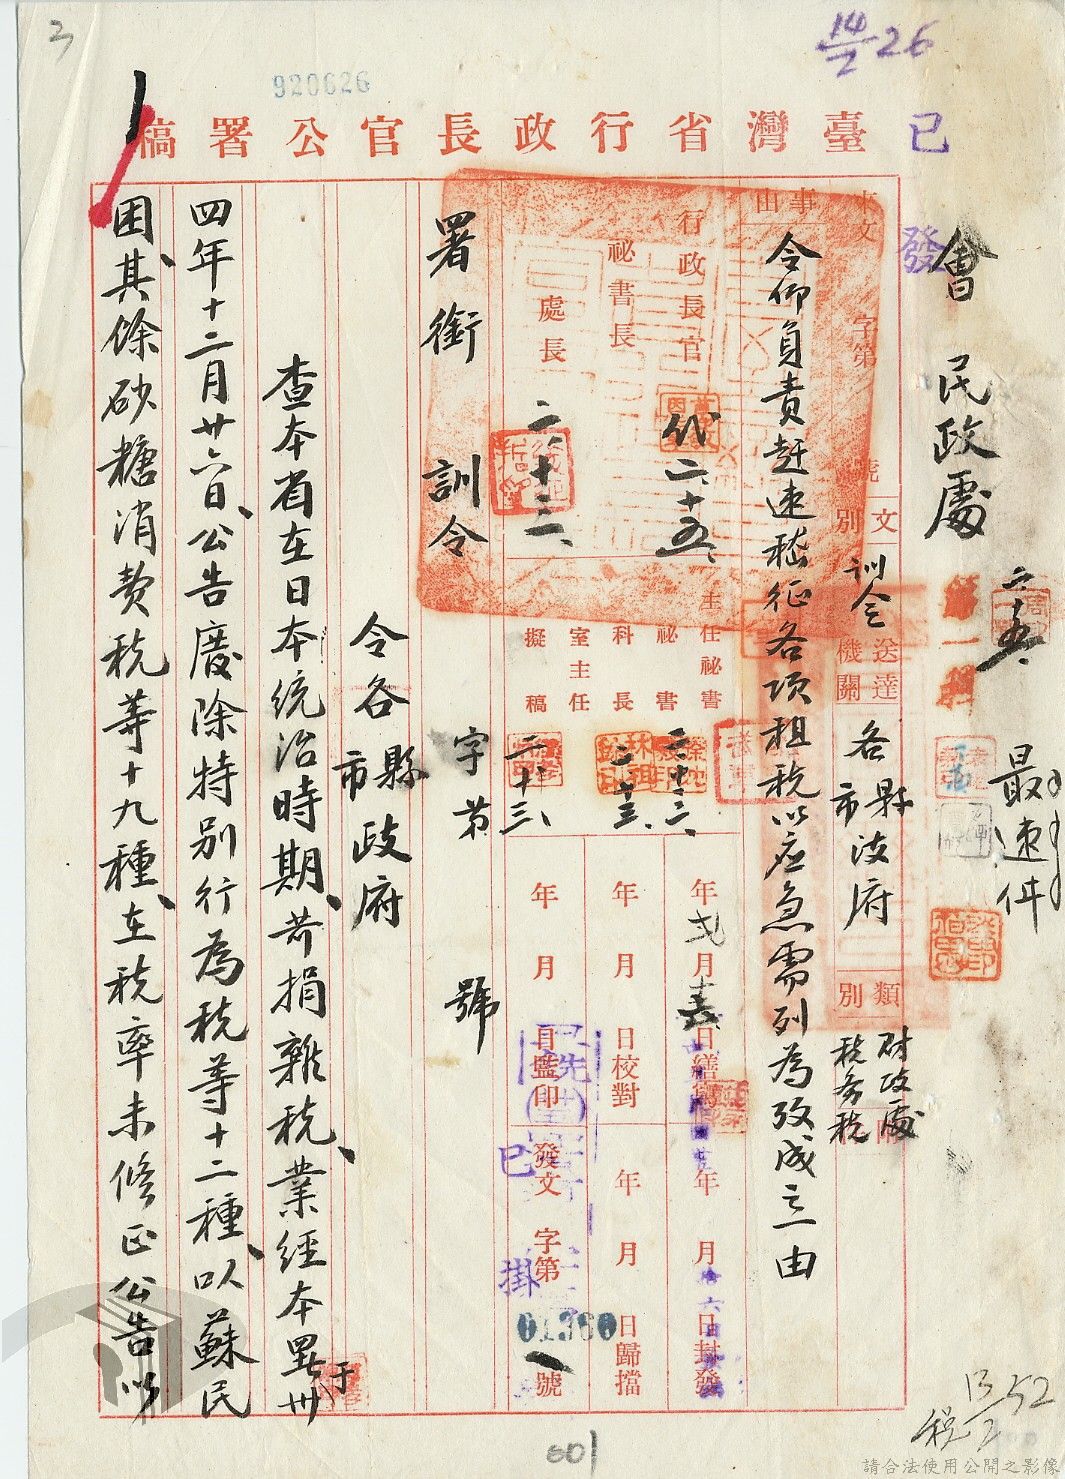 3
14/2 26
920626
臺灣省行政長官公署稿
已發
會 民政處 二、十五、
最速件
第一科
來文 字第 號
文別 訓令
送達機關 各縣市政府
類別 財政處 稅務稅
事由
令仰負責赶速嵇征各項租稅以应急需列為攷成之由
行政長官 代 二、十五、
秘書長
處長 二、十三、
主任秘書 二、十三、
秘書
科長
室主任
擬稿 二、十三、
年 弍月 日繕寫
年 月 日校對
年 月 日監印
年 月 日封發
年 月 日歸檔
發文 字第 01360 號
已掛
署銜 訓令 字第 號
令各縣市政府
查本省在日本統治時期、苛捐雜稅、業經本署于卅
四年十二月廿六日、公告廢除特別行為稅等十二種、以蘇民
困、其餘砂糖消費稅等十九種、在稅率未修正公告以
稅 13/2 52
601
請合法使用公開之影像